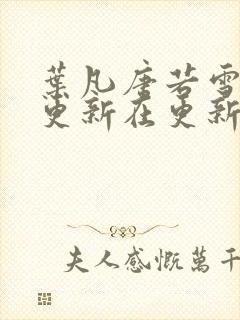 葉凡唐若雪
更新在更新
夫人感慨萬千